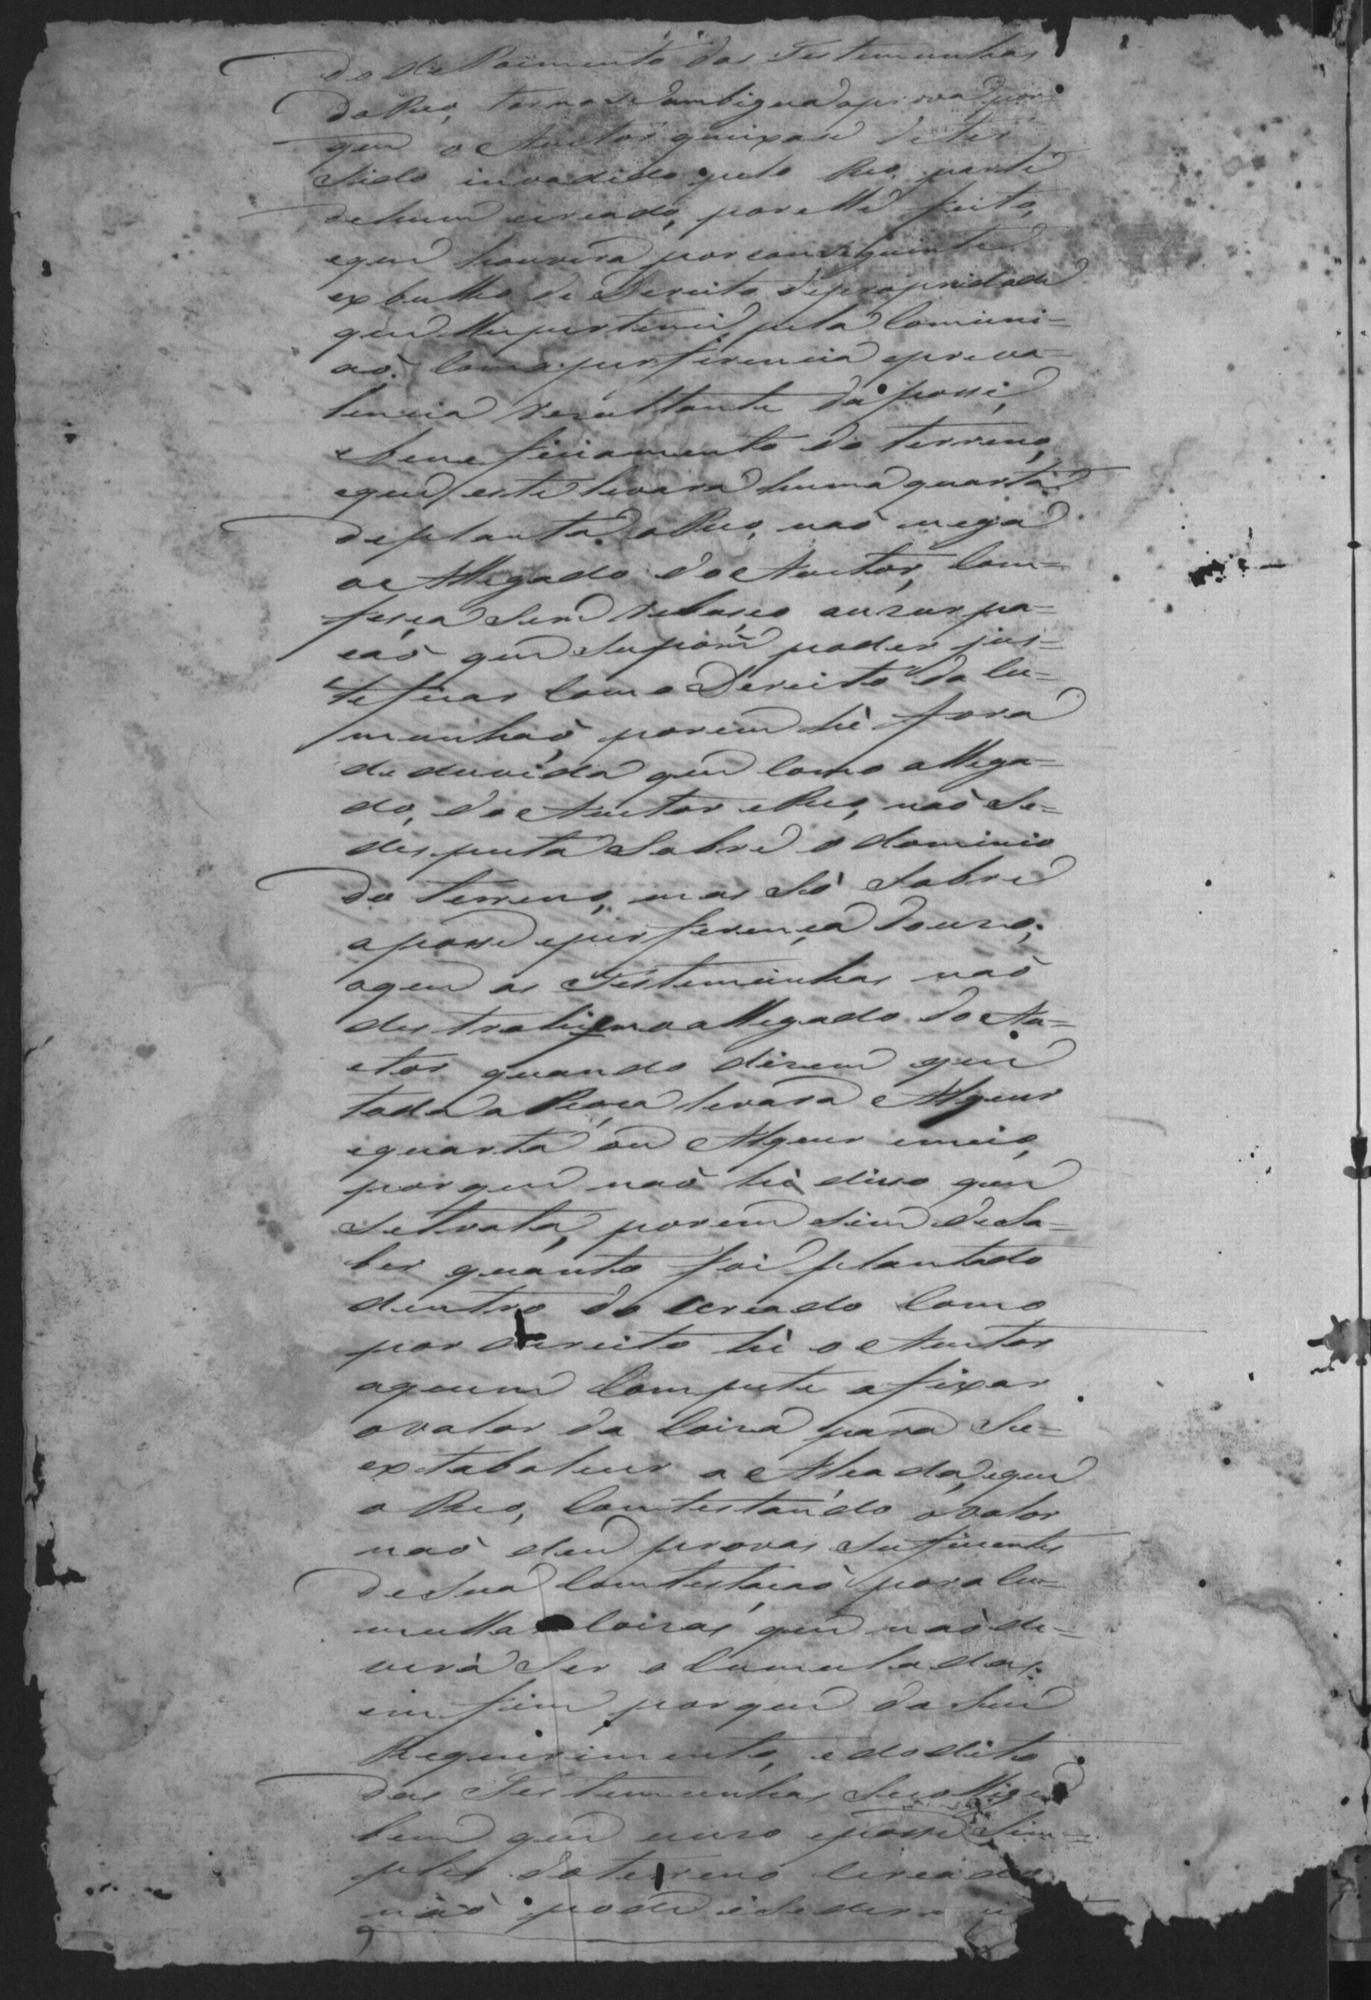 do depoimento das Testemunhas
do Reo, torna-se ambigua a prova por
que o Auctor queixase de ter
sido invadido pelo Reo, parte
de hum cercado, por elle feito,
e que houvera por conseguinte
exbulho de Dereito de propriedade
que lhe pertence pela Comuni-
aõ. Com a perferencia e preva-
lencia resultante da posse,
e beneficiamento do terreno,
e que este levara huma quarta
de planta. O Reo, naõ nega
o Allegado do Auctor, Com-
feça sem rebuço a uzurpa-
caõ que supoem poder jus-
teficar com o Dereito da Cu-
munhaõ, porem hé fora
de duvida que como allega-
do, do Auctor e Reo, naõ se
desputa sobre o dominio
do terreno, mas só sobre
a posse e perferença do uzo;
e que as Testemunhas naõ
destrahem o allegado do Au-
ctor quando dizem que
toda a Roça levara Alqueir
e quarta ou Alqueir e meio,
por que naõ hé disso que
se trata, porem sim de sa-
ber quanto foi plantado
dentro do cercado como
por dereito hé o Auctor
a quem compete a fixar
o valor da coiza para se
extabalecer a Alcada, e que
o Reo, contestando o valor
naõ deu provas suficientes
de sua contestacaõ para cu-
mullar coizas que naõ de-
verá ser acumuladas:
em fim, porque do seu
Requerimento, e do dito
das Testemunhas se collige
bem que o uzo e posse sim-
ples do terreno cercado
naõ pode